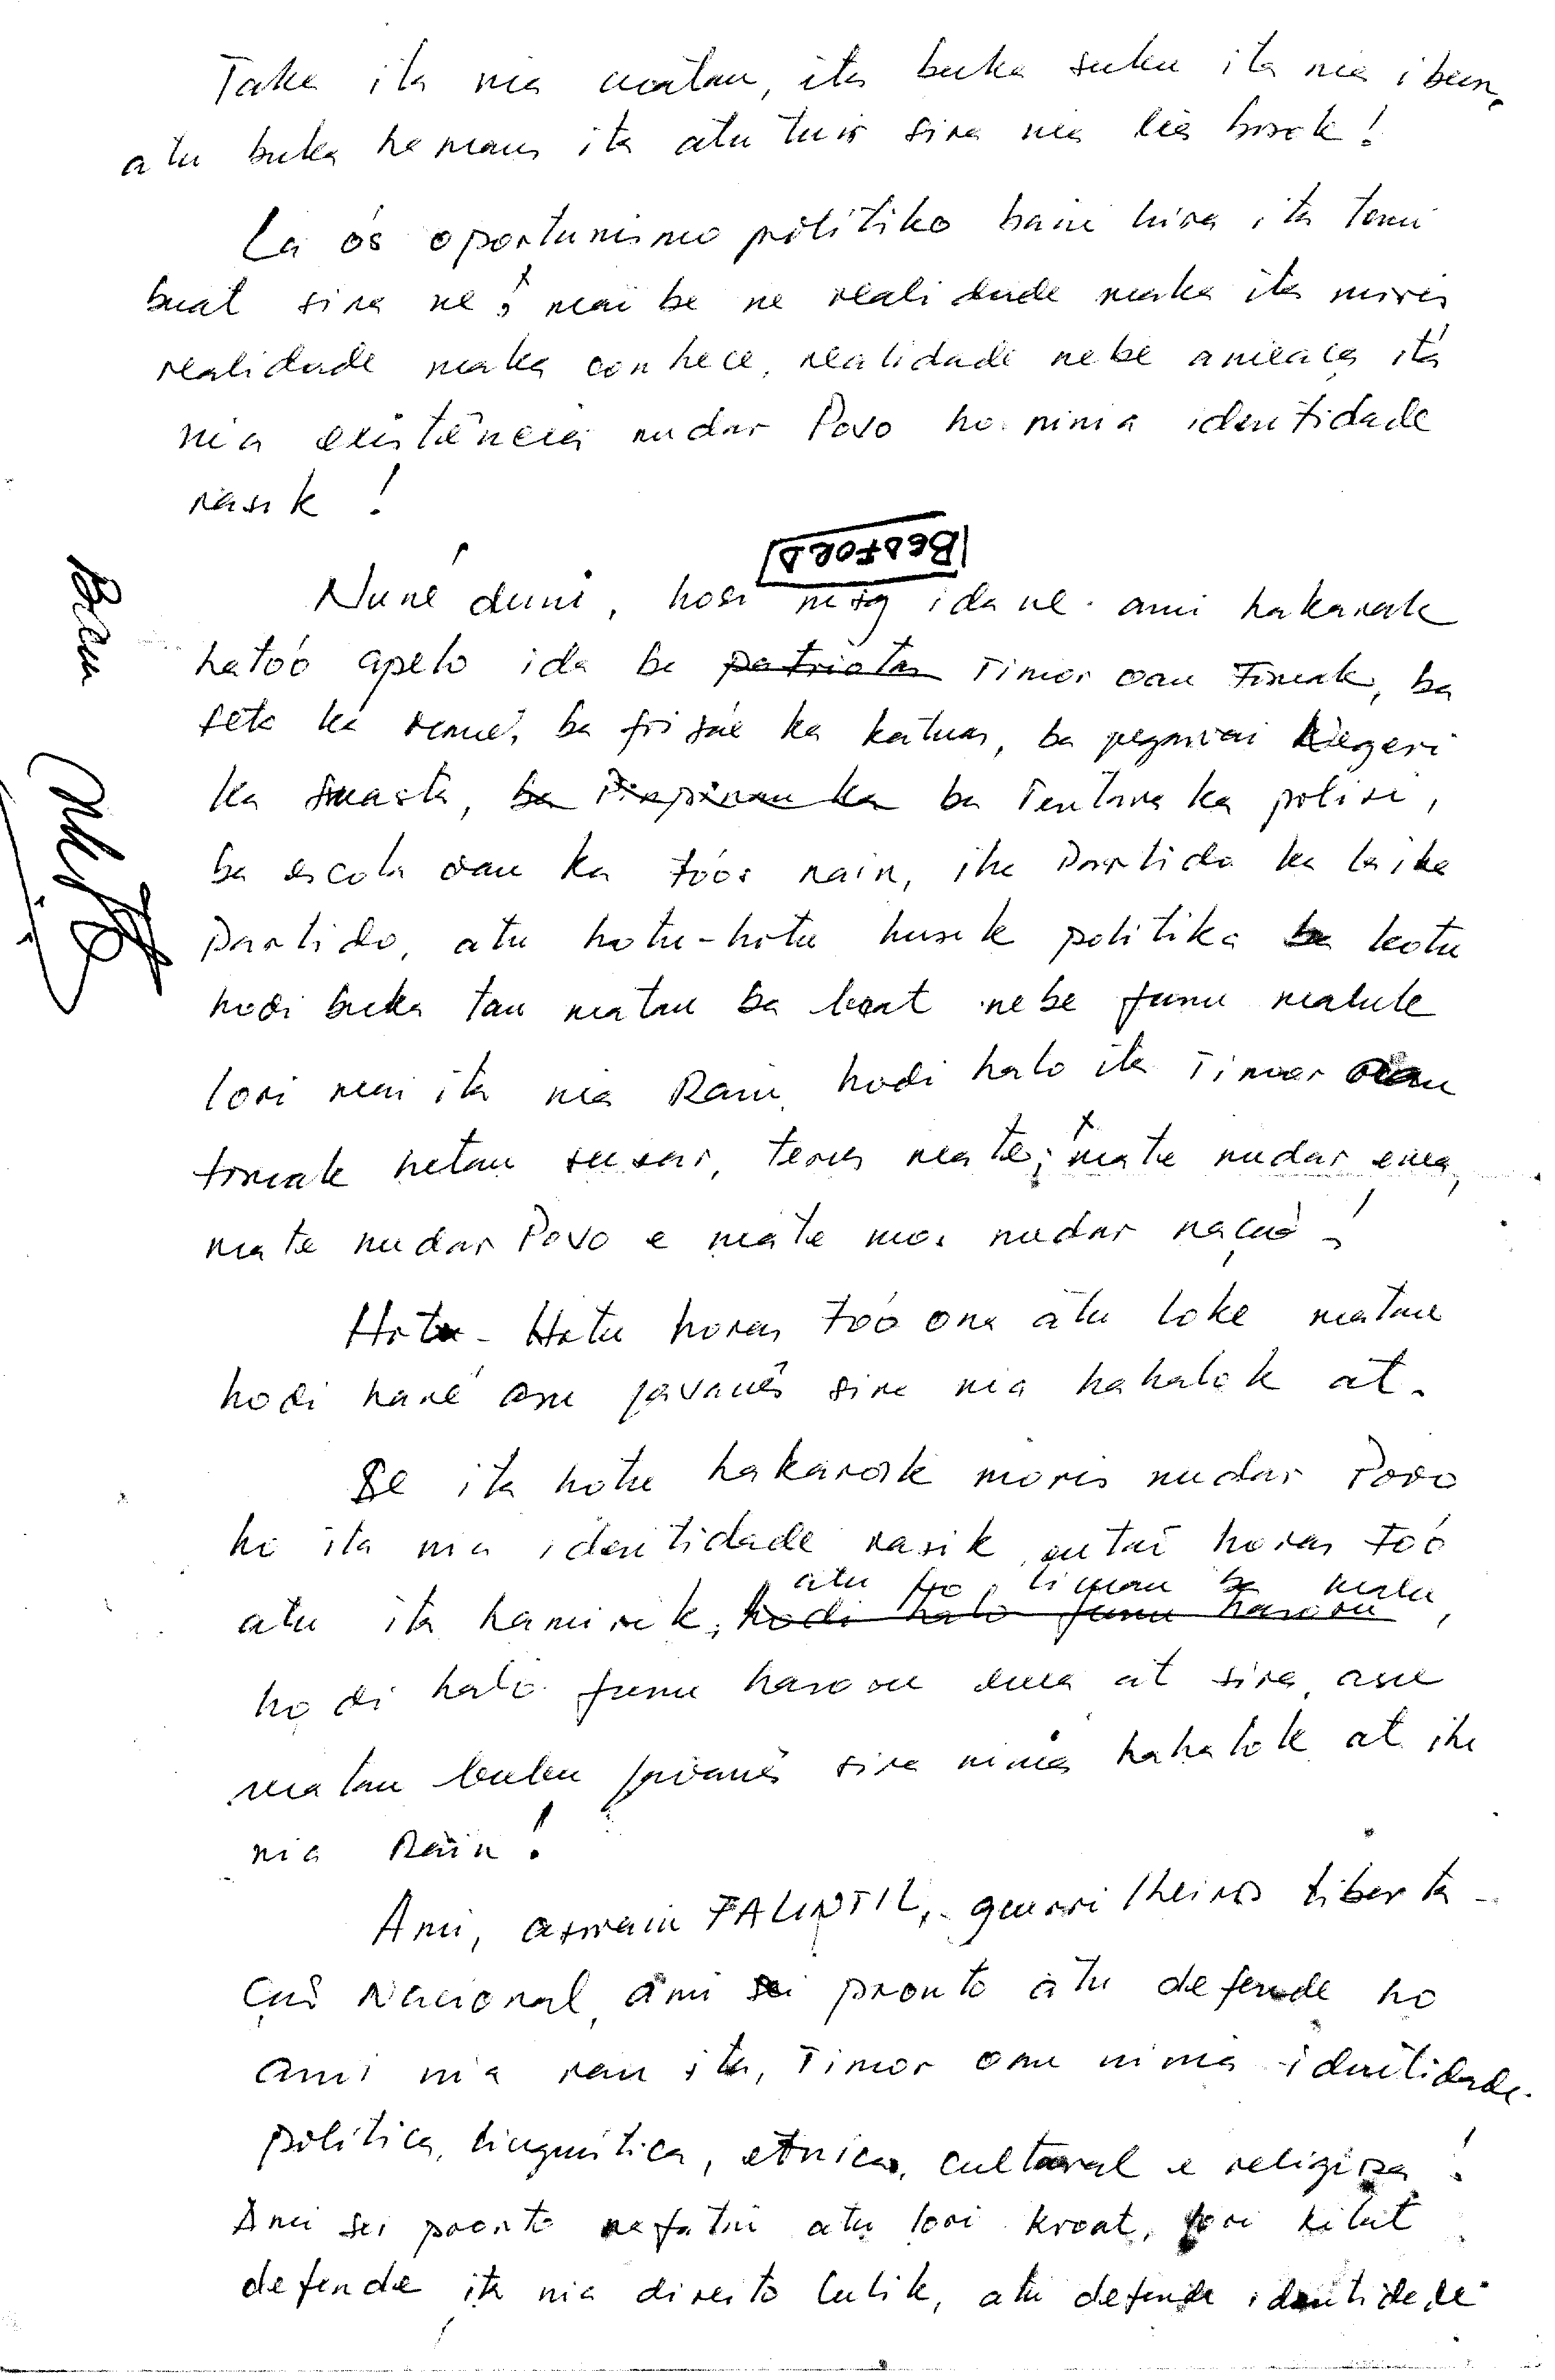 Taka ita nia matan, ita buka suku ita nia ibun,
atu buka hanoin ita atu tuir sira nia lia bosok!
La ós oportunismo politiko bain hira ita temi
buat sira ne, mai be ne realidade maka ita moris
realidade maka conhece, realidade nebe ameaça ita
nia existência nudar Povo ho ninia identidade
rasik!
BEDFORD
Nuné duni, hosi ida ne ami hakarak
ható'o apelo ida ba patriotas Timor oan tomak, ba
feto ka mane, ba foi sae ka katuas, ba pegawai Negeri
ka swasta, ba Pimpinan ka ba Tentara ka polisi,
ba escola oan ka tóos nain, iha Partido ka la iha
Partido, atu hotu-hotu husik politika ba kotu
hodi buka tau matan ba buat nebe funu maluk
lori mai ita nia Rain, hodi halo ita Timor oan
tomak hetan susar, terus mate; mate nudar ema,
mate nudar Povo e mate mos nudar nação!
Hotu-Hotu horas tóo ona atu loke matan
hodi haré asu javanês sira nia hahalok át.
Se ita hotu hakarak moris nudar Povo
ho ita nia identidade rasik, entaõ horas tóo
atu fo liman ba malu,
atu ita hamirik, hodi halo funu hasoru
hodi halo funu hasoru ema at sira, asu
matan bubu javanês sira ninia hahalok at iha
nia Rain!
Ami, aswain FALINTIL, guerrilheiros liberta-
ção Nacional, ami sei pronto atu defende ho
ami nia ran ita, Timor oan ninia identidade
politica, linguistica, etnica, cultural e religiosa!
Ami sei pronto nafatin atu lori kroat, lori kilat
defende ita nia direito lulik, atu defende identidade